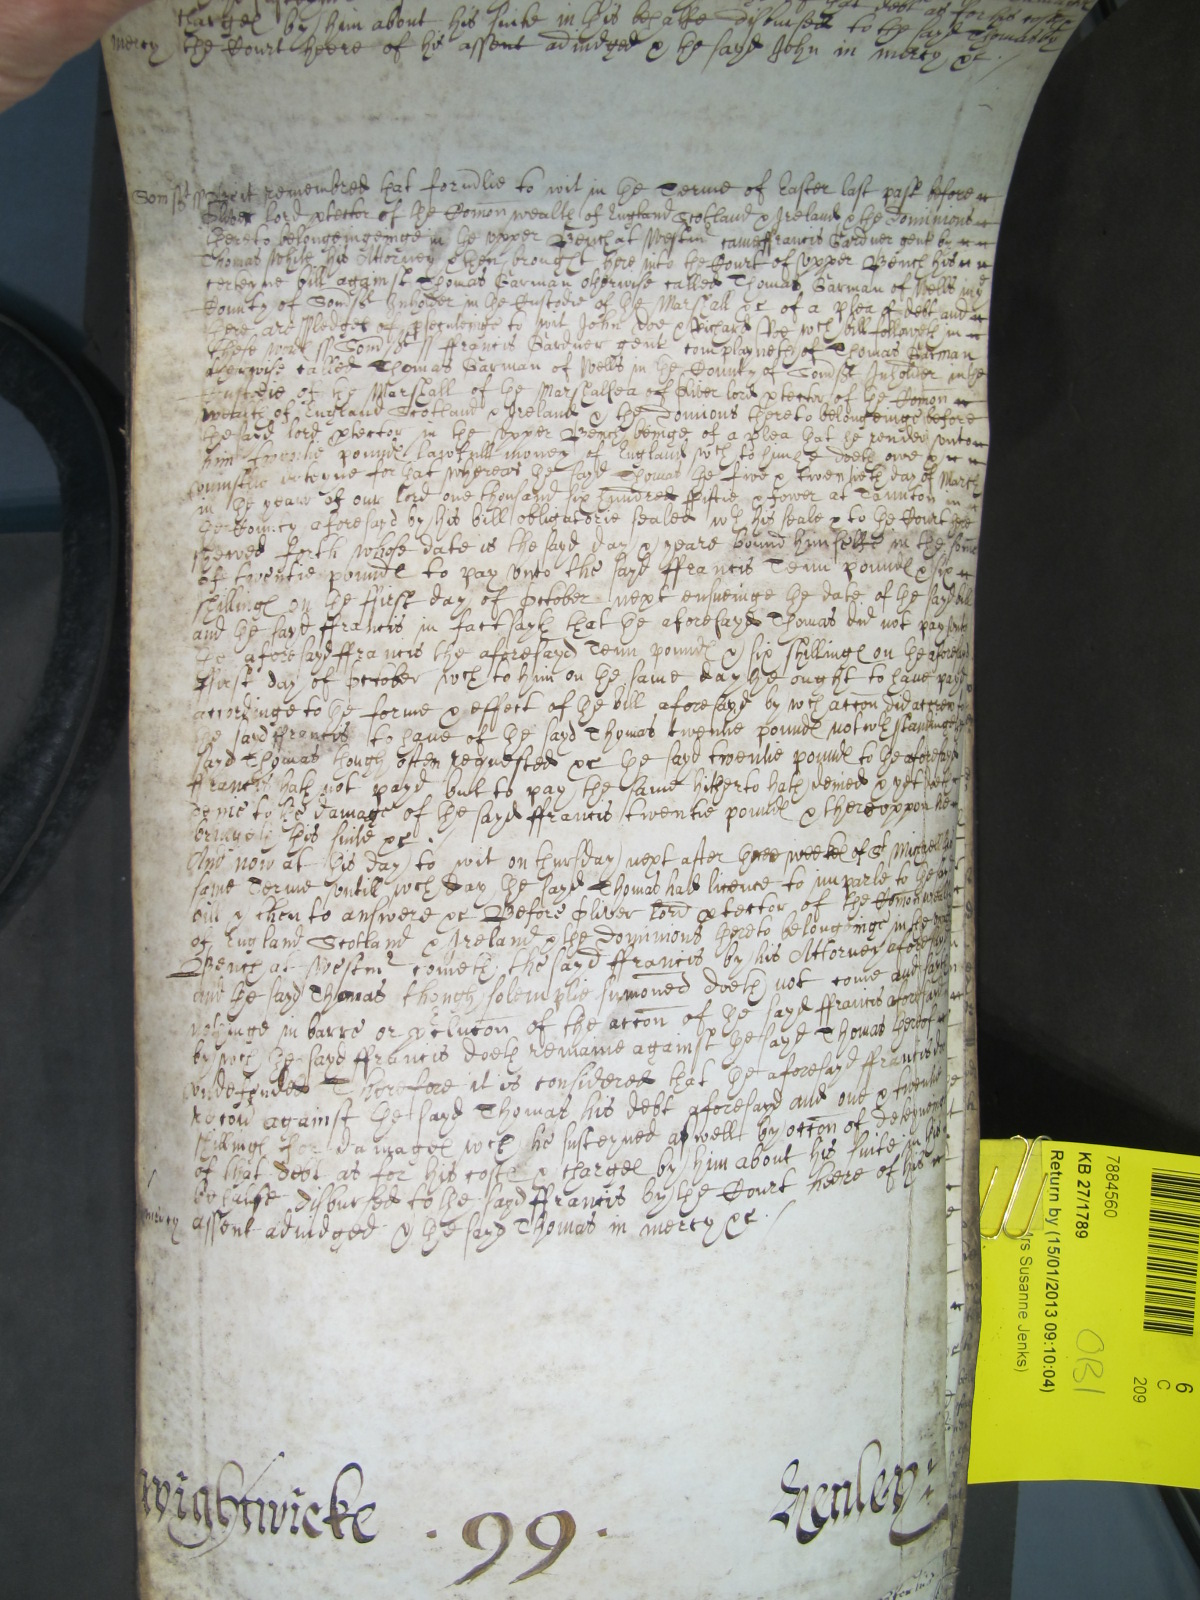 charges by him about his suite in his behalfe disbursed to the sayd Thomas by
mercy the Court heere of his assent adiudged & the sayd John in mercy &c
Somsᵗ ss Bee it remembred that formlie to wit in the Terme of Easter last past before
Oliver lord ptector of the Comonwealth of England Scotland & Ireland & the Dominions
thereto belongeinge in the upper Bench at Westmʳ came ffrancis Gardner gent by
Thomas White his Attorney & then brought here into the Court of upper Bench his
certeyne bill against Thomas Garman otherwise called Thomas Garman of Wells in yᵉ
County of Somsᵗ Inholder in the Custodie of the Marshall &c of a plea of debt and
there are pledges of psecuteinge to wit John Doe & Richard Roe wch bill followeth in
these words ss Somsᵗ ss ffrancis Gardner gent complayneth of Thomas Garman
otherwise called Thomas Garman of Wells in the County of Somsᵗ Inholder in the
Custodie of the Marshall of the Marshalsea of Oliver lord ptector of the Comon
wealth of England Scotland & Ireland & the Dominions thereto belongeinge before
the sayd lord ptector in the upper Bench beinge of a plea that he render unto
him twentie pounds lawfull money of England wch to him he doth owe &
uniustlie deteyne for that whereas the sayd Thomas the five & twentieth day of March
in the yeare of our lord one thousand six hundred fiftie & fower at Taunton in
the County aforesayd by his bill obligatorie sealed wth his seale & to the Court here
shewed forth whose date is the sayd day & yeare bound himselfe in the some
of twentie pounds to pay unto the sayd ffrancis Tenn pounds & six
shillings on the ffirst day of October next ensueinge the date of the sayd bill
and the sayd ffrancis in fact sayth that the aforesayd Thomas did not pay unto
the aforesayd ffrancis the aforesayd Tenn pounds & six shillings on the aforesayd
ffirst day of October wch to him on the same day he ought to have payd
accordinge to the forme & effect of the bill aforesayd by wch accon did accrew to
the sayd ffrancis to have of the sayd Thomas twentie pounds notwthstandinge the
sayd Thomas though often requested &c the sayd twentie pounds to the aforesayd
ffrancis hath not payd but to pay the same hitherto hath denied & yet doth
denie to the damage of the sayd ffrancis twentie pounds & thereuppon he
bringeth his suite &c
And now at this day to wit on thursday next after three weekes of Sᵗ Michaell
same Terme untill wch day the sayd Thomas had licence to imparle to the
bill & then to answere &c Before Oliver lord ptector of the Comonwealth
of England Scotland & Ireland & the dominions thereto belongeinge in the upper
Bench at Westmʳ cometh the sayd ffrancis by his Attorney aforesayd
and the sayd Thomas though solemplie sumoned doeth not come and sayth
nothinge in barre or pclucon of the accon of the sayd ffrancis aforesayd
by wch the sayd ffrancis doeth remaine against the sayd Thomas hereof
undefended Therefore it is considered that the aforesayd ffrancis do
recou against the sayd Thomas his debt aforesayd and one & twentie
shillings for damages wch he susteyned aswell by occon of deteyneinge
of that debt as for his costs & charges by him about his suite in his
behalfe disbursed to the sayd ffrancis by the Court heere of his
mercy assent adiudged & the sayd Thomas in mercy &c
Wightwicke
Henley
. 99 .
7884560
KB 27/1789
Return by (15/01/2013 09:10:04)
Mrs Susanne Jenks)
OB1
6
C
209